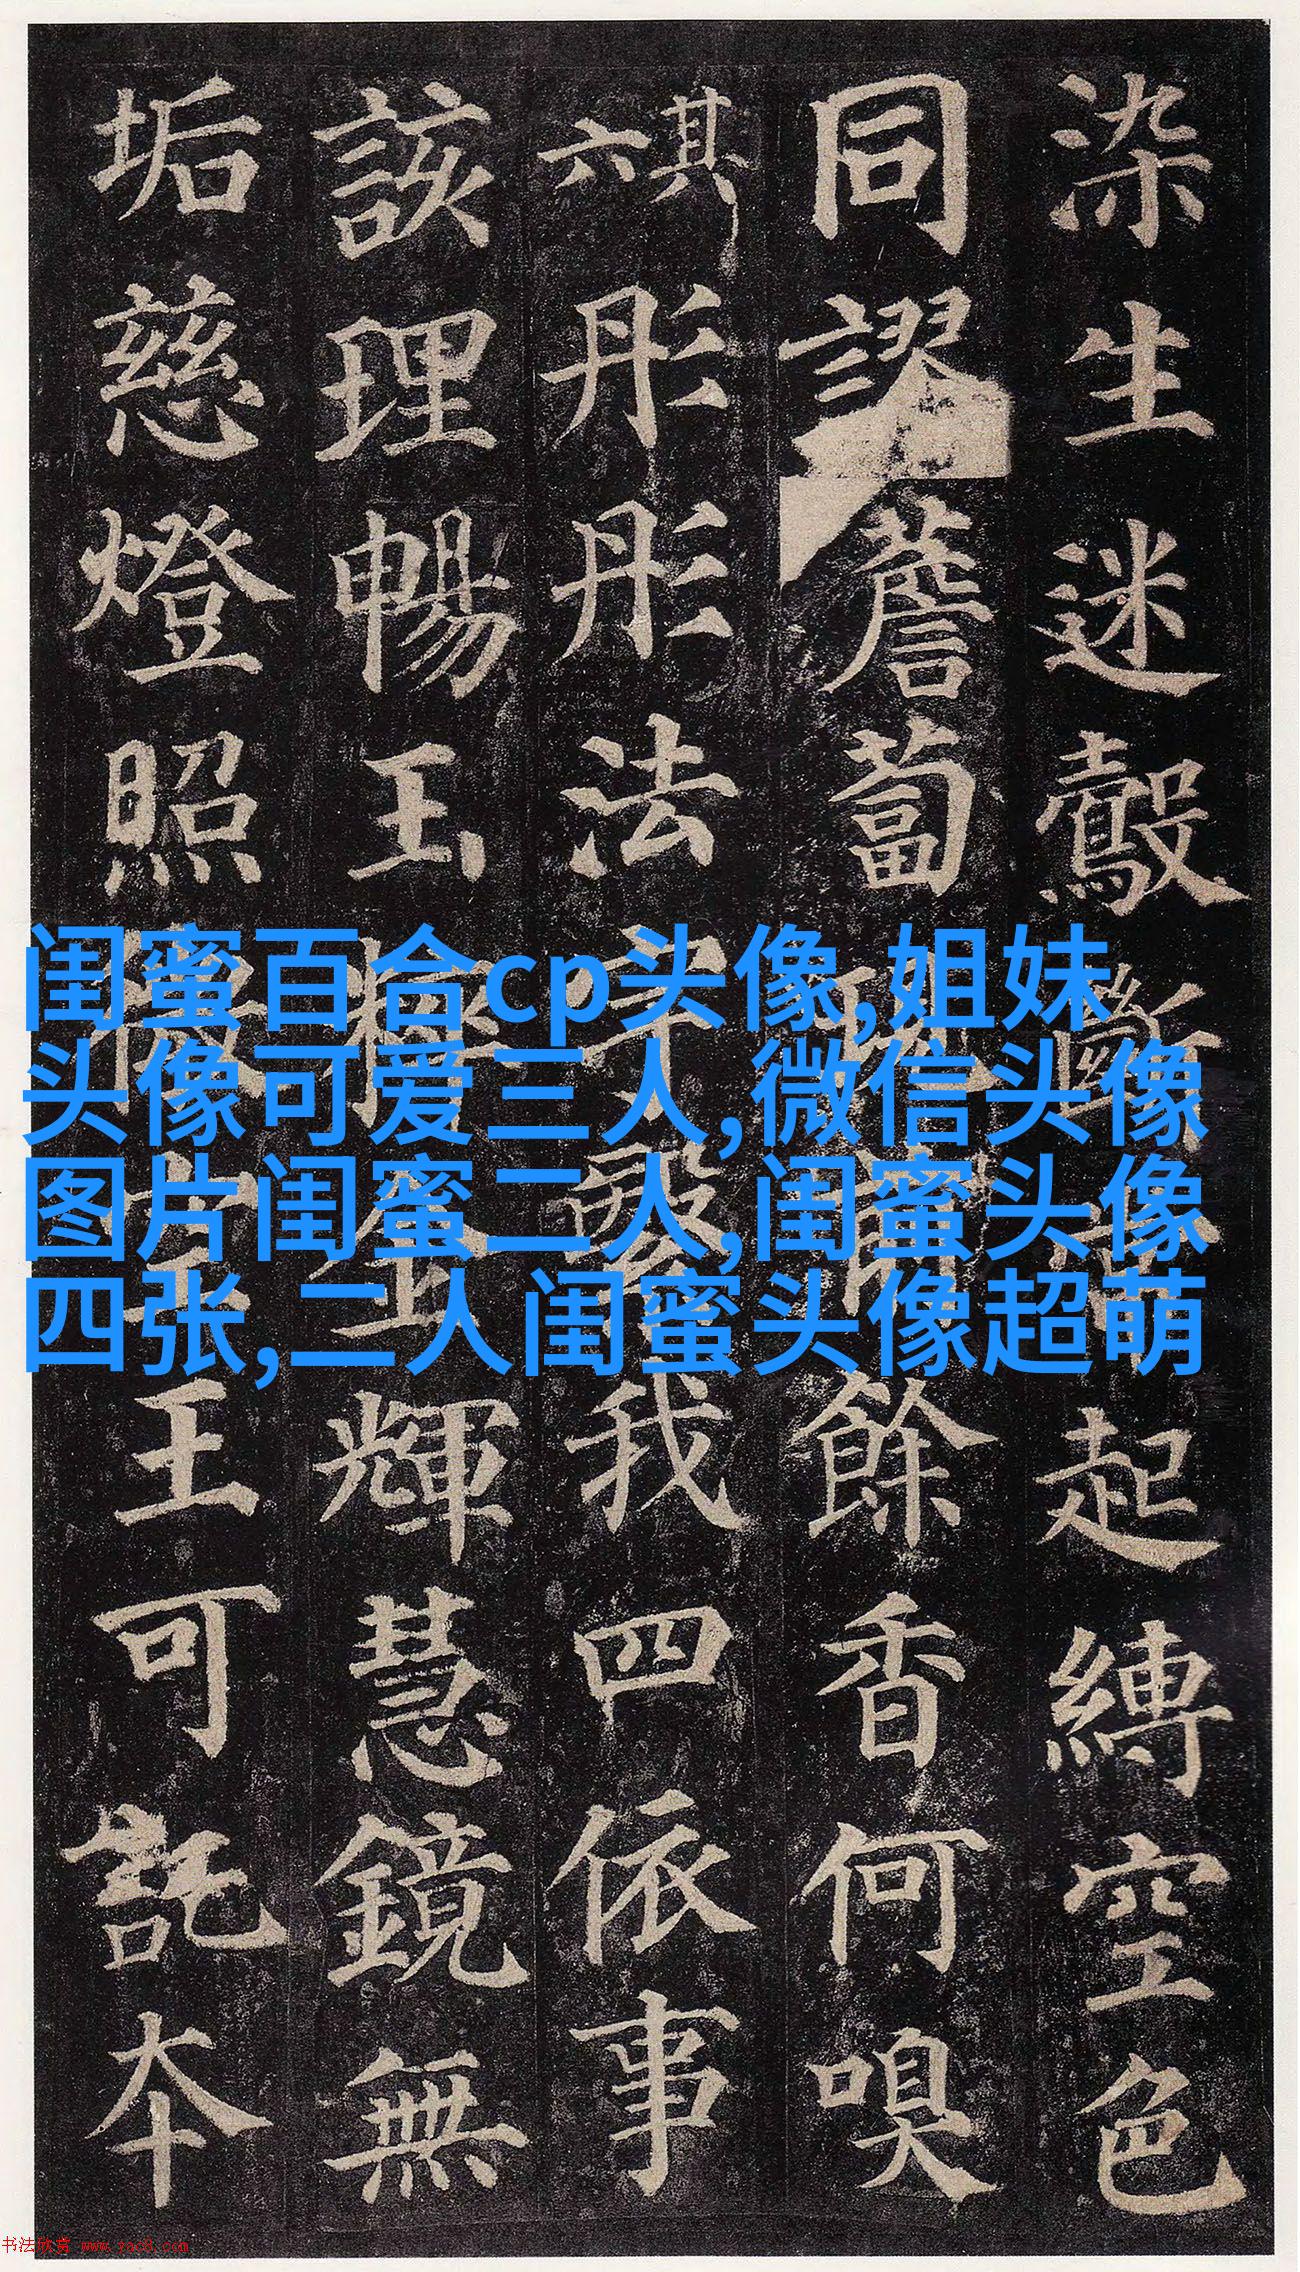 染生迷鷇斷常起縛空色
同謬薝蔔現前餘香何嗅
其六彤彤法宇繄我四依事
該理暢玉粹金輝慧鏡無
垢慈燈照微空王可託本
闺蜜百合cp头像,姐妹
头像可爱三人,微信头像
图片闺蜜二人,闺蜜头像
四张,二人闺蜜头像超萌
书法欣赏 www.yac8.com